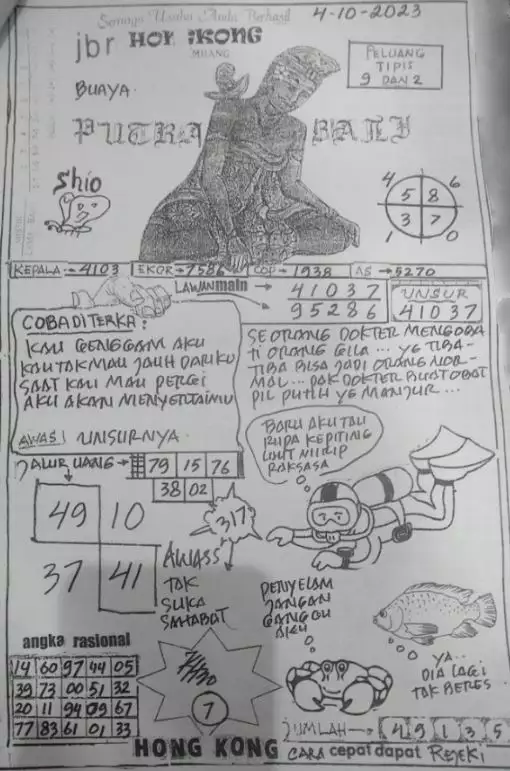 Semoga Usaha Anda Berhasil
4-10-2023
jbr HONGKONG
MALANG
PELUANG
TIPIS
9 DAN 2
BUAYA.
PUTRA BALI
Shio
4 6
5 8
3 7
1 0
KEPALA → 4103 EKOR → 7586 COP → 1938 AS → 5270
LAWAN main → 41037
95286
UNSUR
41037
COBA DITERKA:
KAU GENGGAM AKU
KAU TAK MAU JAUH DARIKU
SAAT KAU MAU PERGI
AKU AKAN MENYERTAIMU
AWAS! UNSURNYA.
SEORANG DOKTER MENGOBA
TI ORANG GILA... YG TIBA-
TIBA BISA JADI ORANG NOR-
MAL... PAK DOKTER BUAT OBAT
PIL PUTIH YG MANJUR...
BARU AKU TAU
RUPA KEPITING
RAKSASA
JALUR UANG → 79 15 76
38 02
317
49 10
37 41
AWASS
TAK
SUKA
SAHABAT
PENYELAM
JANGAN
GANGGU
AKU
YA..
DIA LAGI
TAK BERES
angka rasional
14 60 97 44 05
39 73 00 51 32
20 11 94 09 67
77 83 61 01 33
7
JUMLAH → 4 9 1 3 5
HONG KONG CARA cepat dapat REJEKI